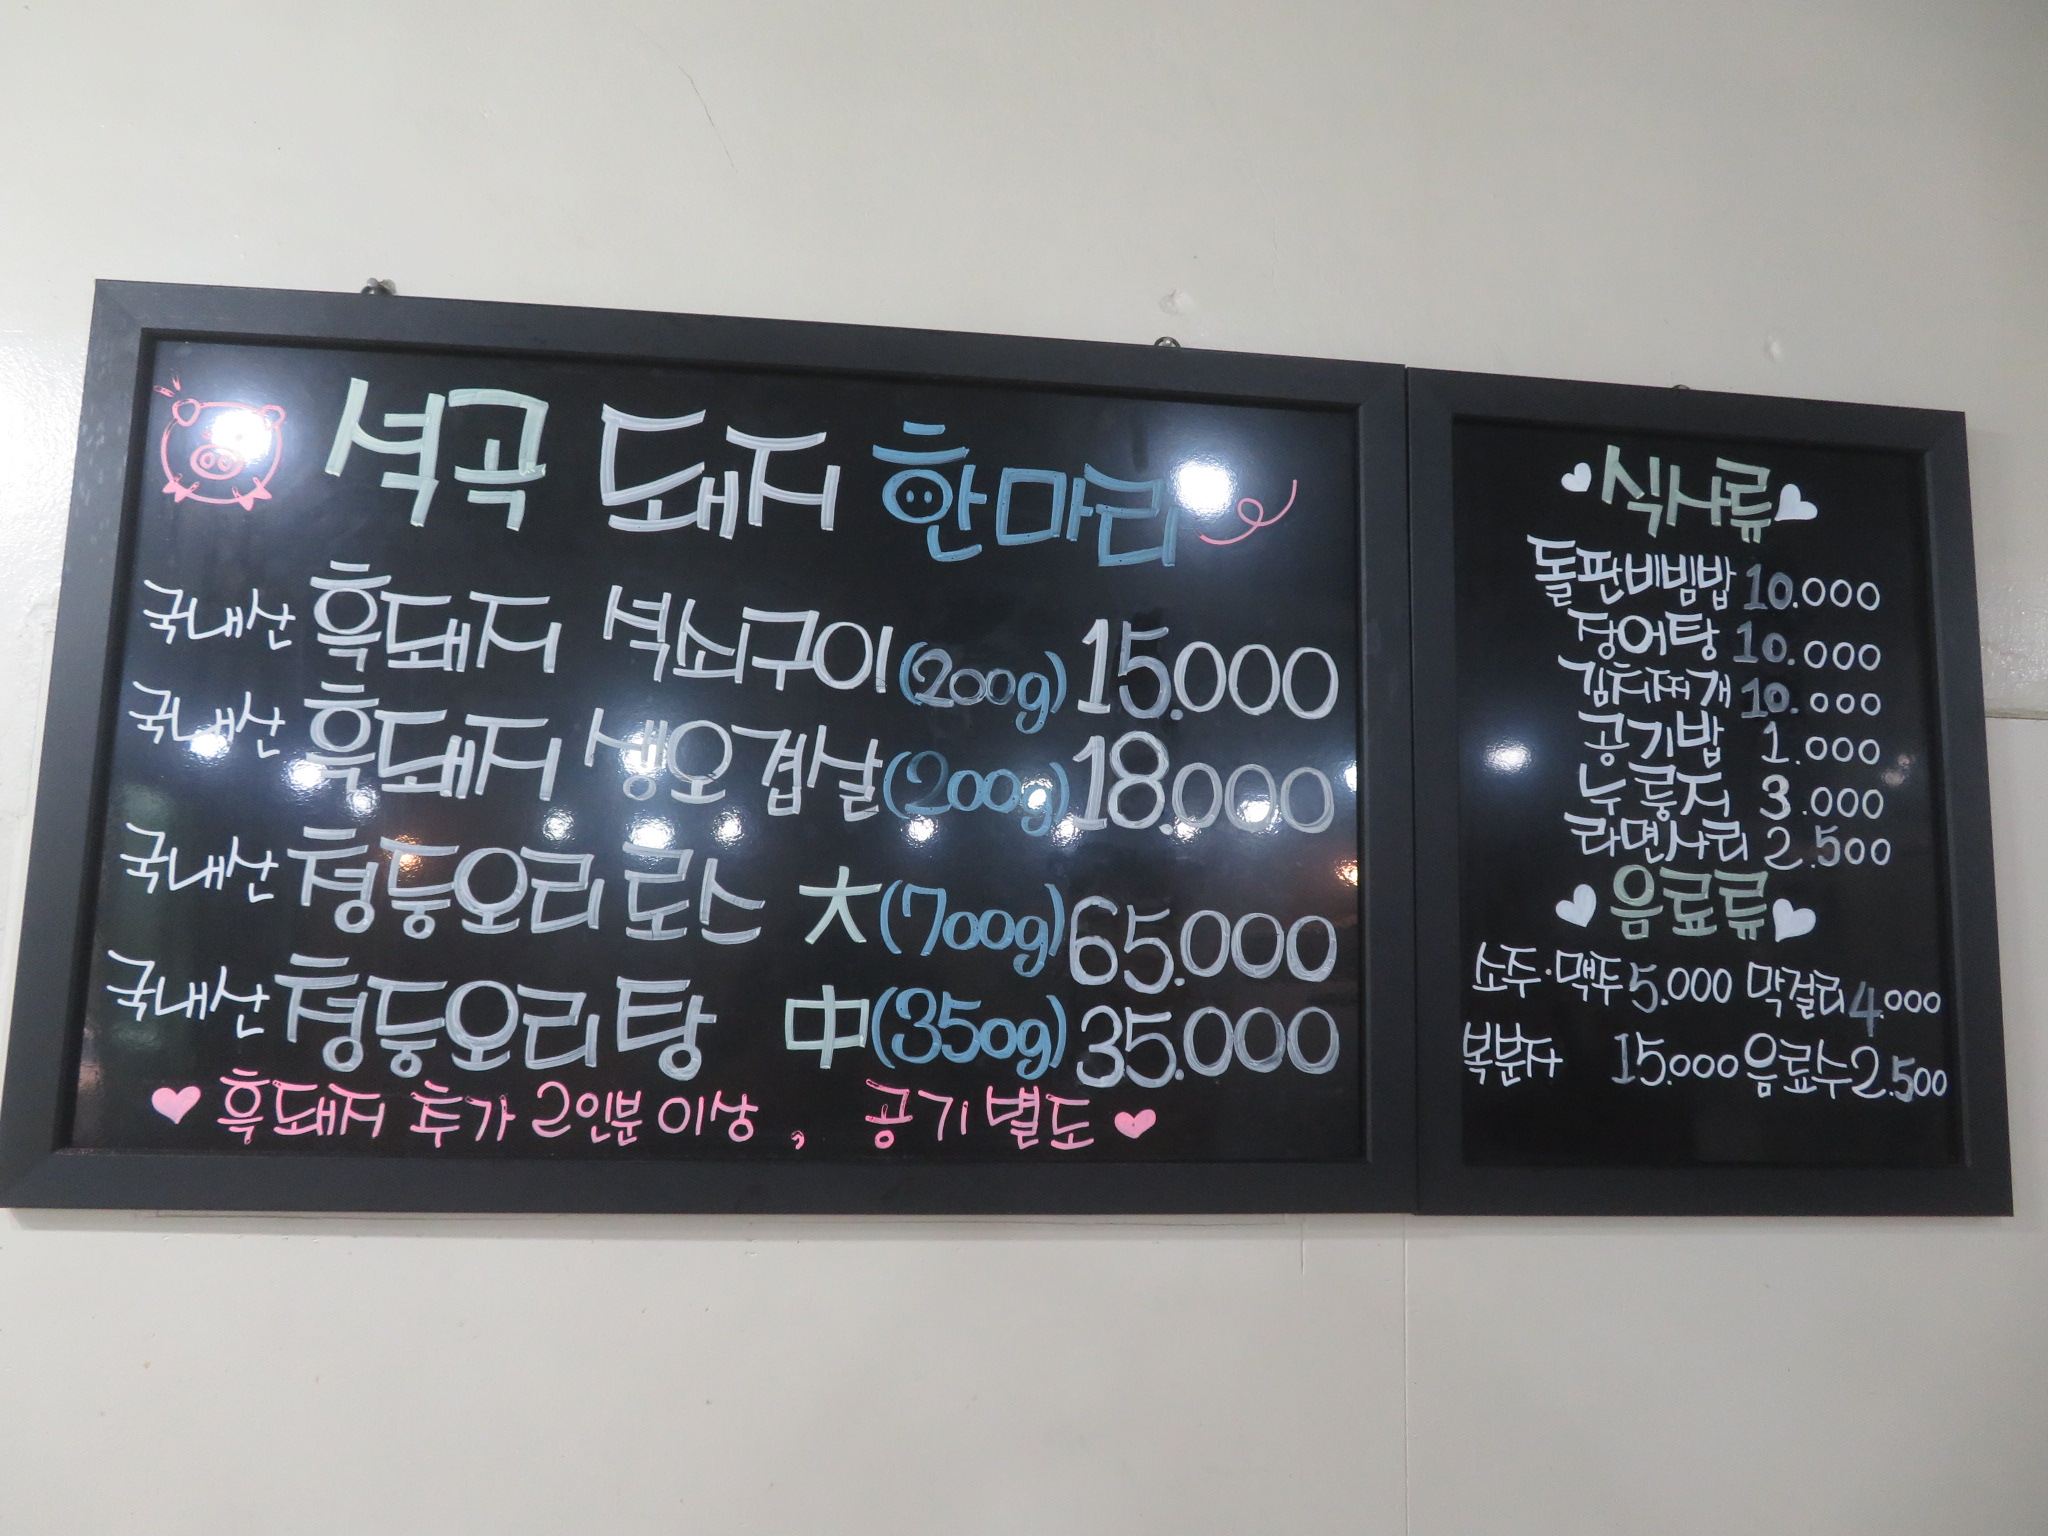 석곡 돼지 한마리
국내산 흑돼지 석쇠구이 (200g) 15.000
국내산 흑돼지 생오겹살 (200g) 18.000
국내산 청둥오리 로스 大 (700g) 65.000
국내산 청둥오리탕 中 (350g) 35.000
흑돼지 추가 2인분 이상, 공기 별도
식사류
돌판비빔밥 10.000
장어탕 10.000
김치찌개 10.000
공기밥 1.000
누룽지 3.000
라면사리 2.500
음료류
소주·맥주 5.000 막걸리 4.000
복분자 15.000 음료수 2.500